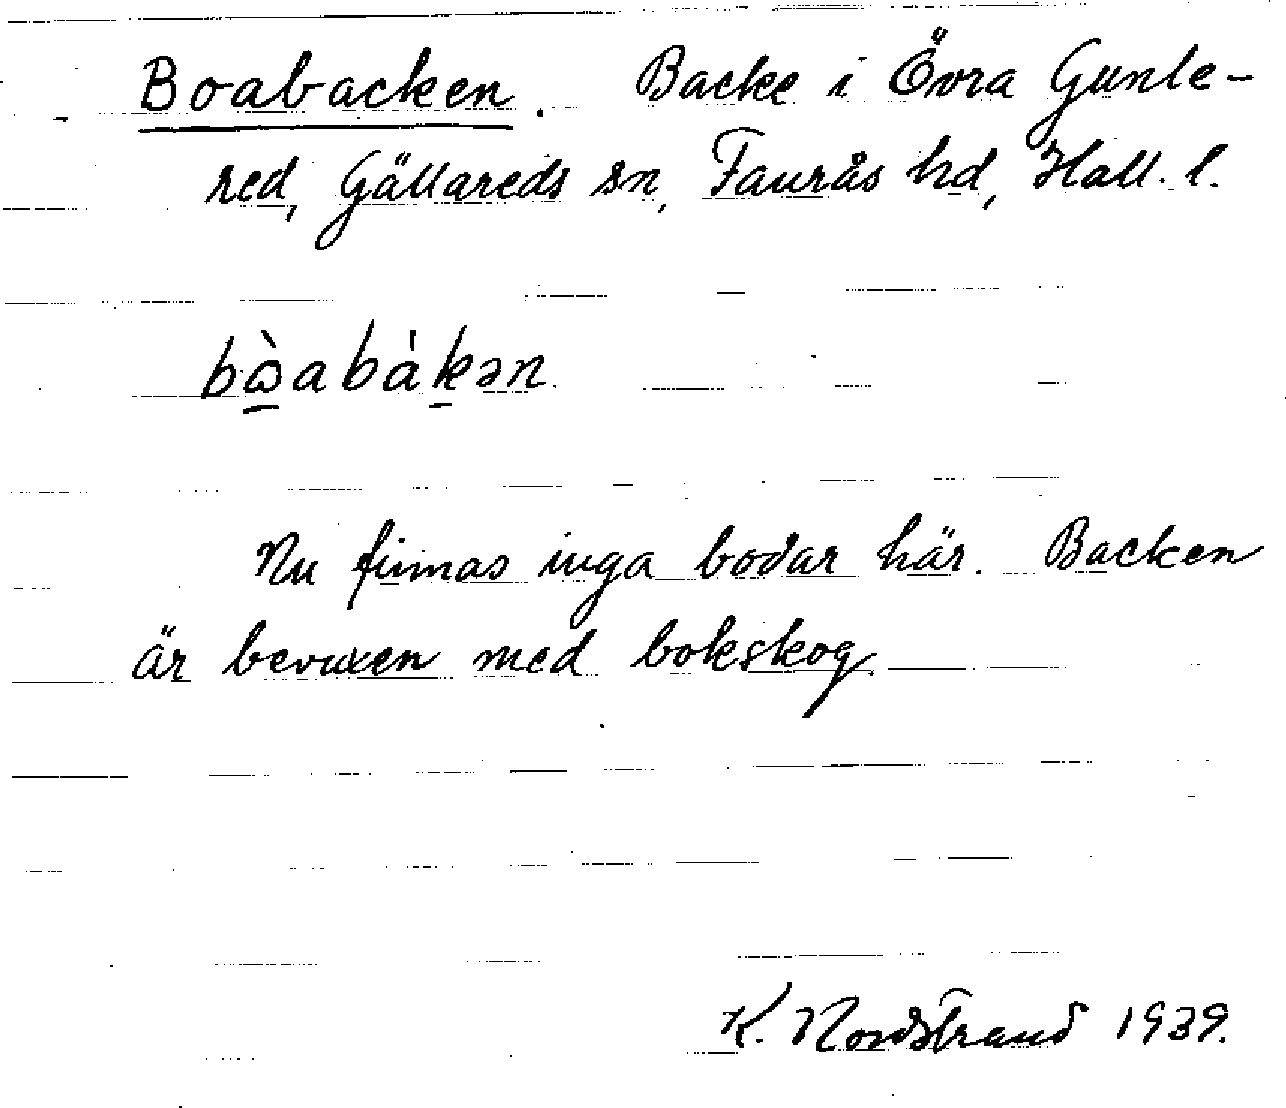 Boabacken. Backe i Övra Gunle-
red, Gällareds sn, Faurås hd, Hall. l.
bɷ̀abàkən
Nu finnas inga bodar här. Backen
är bevuxen med bokskog.
K. Nordstrand 1939.